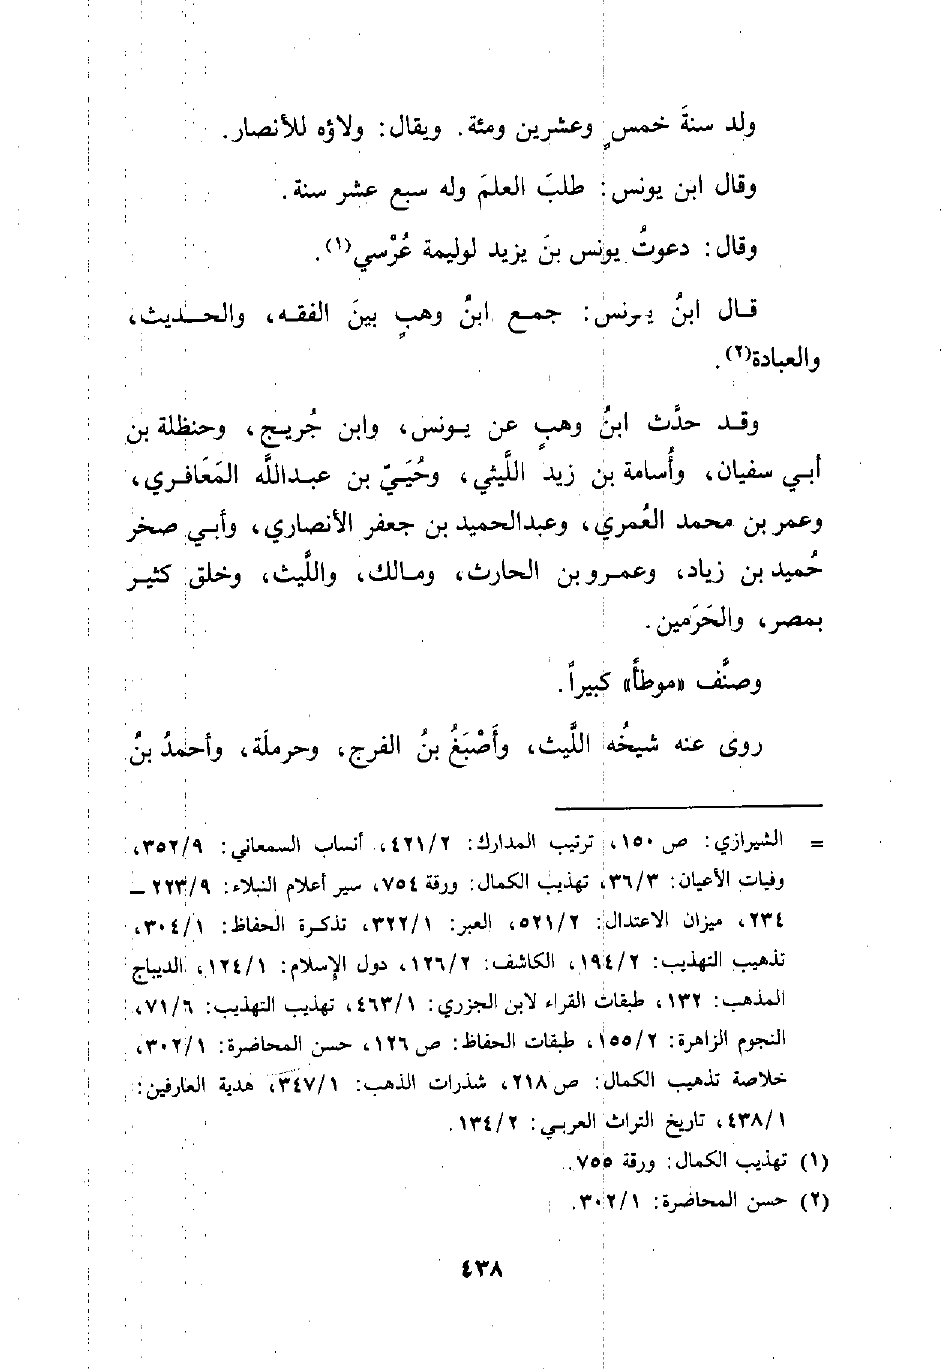 ولد سنةَ خمسٍ وعشرين ومئة. ويقال: ولاؤه للأنصار.
وقال ابن يونس: طلبَ العلمَ وله سبع عشر سنة.
وقال: دعوتُ يونس بنَ يزيد لوليمة عُرْسي(١).
قال ابنُ يونس: جمع ابنُ وهبٍ بينَ الفقه، والحديث،
والعبادة(٢).
وقد حدَّث ابنُ وهبٍ عن يونس، وابن جُريج، وحنظلة بن
أبي سفيان، وأُسامة بن زيد اللَّيثي، وحُيَيّ بن عبدالله المَعَافري،
وعمر بن محمد العُمري، وعبدالحميد بن جعفر الأنصاري، وأبي صخر
حُميد بن زياد، وعمرو بن الحارث، ومالك، واللَّيث، وخلق كثير
بمصر، والحَرَمين.
وصنَّف «موطأ» كبيراً.
روى عنه شيخُه اللَّيث، وأَصْبَغُ بنُ الفرج، وحرملَة، وأحمدُ بنُ
= الشيرازي: ص ١٥٠، ترتيب المدارك: ٤٢١/٢، أنساب السمعاني: ٣٥٢/٩،
وفيات الأعيان: ٣٦/٣، تهذيب الكمال: ورقة ٧٥٤، سير أعلام النبلاء: ٢٢٣/٩ ـ
٢٣٤، ميزان الاعتدال: ٥٢١/٢، العبر: ٣٢٢/١، تذكرة الحفاظ: ٣٠٤/١،
تذهيب التهذيب: ١٩٤/٢، الكاشف: ١٢٦/٢، دول الإسلام: ١٢٤/١، الديباج
المذهب: ١٣٢، طبقات القراء لابن الجزري: ٤٦٣/١، تهذيب التهذيب: ٧١/٦،
النجوم الزاهرة: ١٥٥/٢، طبقات الحفاظ: ص ١٢٦، حسن المحاضرة: ٣٠٢/١،
خلاصة تذهيب الكمال: ص ٢١٨، شذرات الذهب: ٣٤٧/١، هدية العارفين:
٤٣٨/١، تاريخ التراث العربي: ١٣٤/٢.
(١) تهذيب الكمال: ورقة ٧٥٥.
(٢) حسن المحاضرة: ٣٠٢/١.
٤٣٨